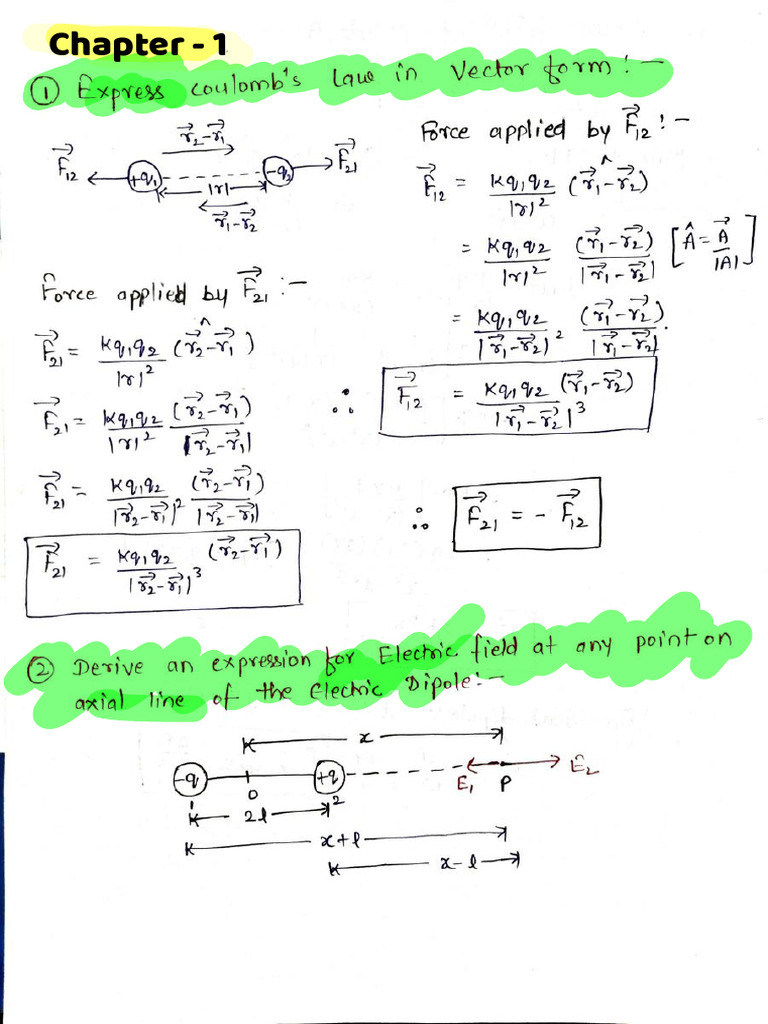 Chapter - 1
① Express Coulomb's Law in Vector form :-
r⃗₂-r⃗₁
F⃗₁₂ +q₁ -q₂ F⃗₂₁
|r|
r⃗₁-r⃗₂
Force applied by F⃗₂₁ :-
F⃗₂₁ = Kq₁q₂/|r|² (r⃗₂-r⃗₁)^
F⃗₂₁ = Kq₁q₂/|r|² (r⃗₂-r⃗₁)/|r⃗₂-r⃗₁|
F⃗₂₁ = Kq₁q₂/|r⃗₂-r⃗₁|² (r⃗₂-r⃗₁)/|r⃗₂-r⃗₁|
F⃗₂₁ = Kq₁q₂/|r⃗₂-r⃗₁|³ (r⃗₂-r⃗₁)
Force applied by F⃗₁₂ :-
F⃗₁₂ = Kq₁q₂/|r|² (r⃗₁-r⃗₂)^
= Kq₁q₂/|r|² (r⃗₁-r⃗₂)/|r⃗₁-r⃗₂| [Â = A⃗/|A|]
= Kq₁q₂/|r⃗₁-r⃗₂|² (r⃗₁-r⃗₂)/|r⃗₁-r⃗₂|.
∴ F⃗₁₂ = Kq₁q₂/|r⃗₁-r⃗₂|³ (r⃗₁-r⃗₂)
∴ F⃗₂₁ = - F⃗₁₂
② Derive an expression for Electric field at any point on
axial line of the Electric Dipole:-
x
-q O +q E₁ P E₂
1 2l 2
x+l
x-l